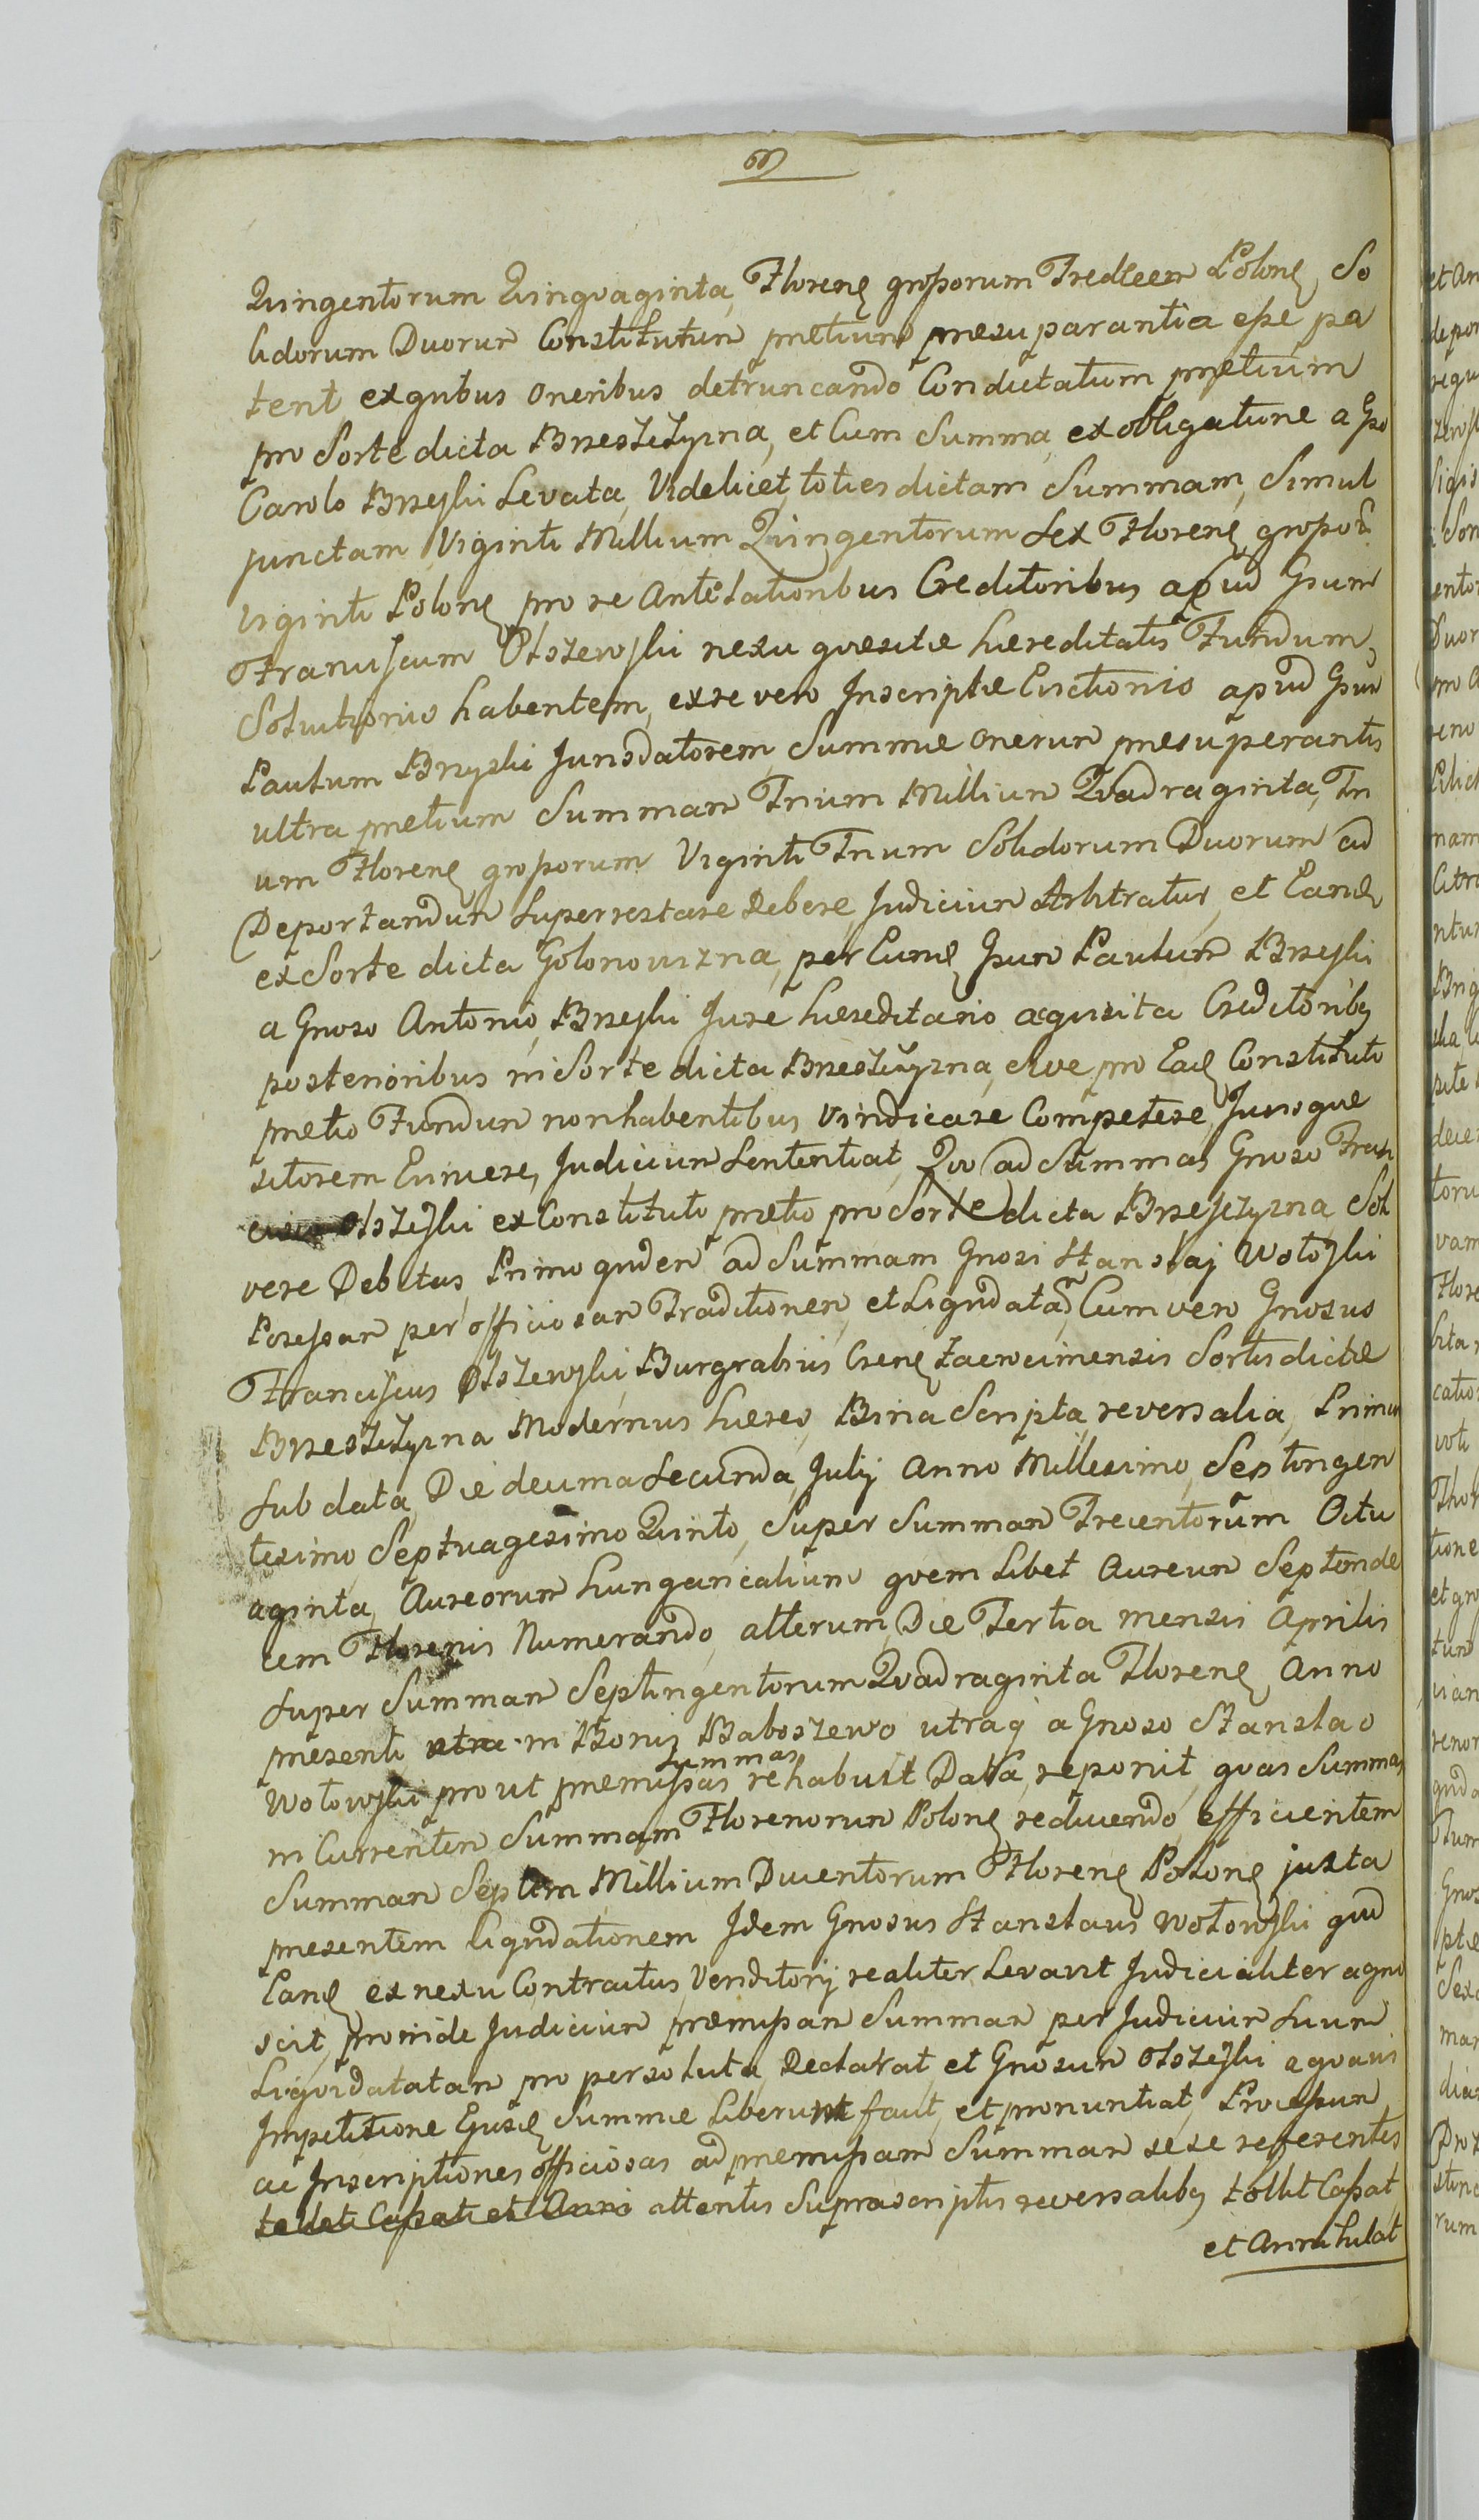 Qvingentorum Qvinqvaginta, Florenę grossorum Tredecem Polonę, So
lidorum Duorum Constitutum pretium presuparantia esse pa
tent, ex quibus oneribus detruncando Condictatum pretium
pro Sorte dicta Brzeszczyzna, et Cum Summa, ex obligatione a Gso
Carolo Brzeski Levata, Videlicet, toties dictam Summam, Simul
junctam, Viginti Millium Qvingentorum Sex Florenę, grossor
Viginti Polonę pro re Antelationibus Creditoribus apud Gsum
Franciscum Olszewski nexu qvesitæ hæreditatis Fundum,
Solutionis habentem, ex re vero Inscriptæ Evictionis apud Gsum
Paulum Brzyski Jurisdatorem, Summæ onerum presuperantis
ultra pretium Summam Trium Millium Qvadraginta, Tri
um Florenę grossorum Viginti Trium Solidorum Duorum ad
Deportandum Superrestare Debere, Judicium Arbitratur, et Eandę
ex Sorte dicta Golonowizna, per Eundę Gsum Paulum Brzeski
a Gnoso Antonio, Brzeski Jure hæreditario aqvisita Creditoribę
posterioribus in Sorte dicta Brzeszczyzna, sive pro Eadę Constituto
pretio Fundum non habentibus Vindicare Competere, Jurisque
sitorem Evincere, Judicium Sententiat, Qvo ad Summas Gnoso Fran
cisco Olszeski ex Constituto pretio pro Sorte dicta Brzeszczyzna Sol
vere Debitas, Primo quidem ad Summam Gnosi Stanslaj Wotoski
Possessam per officiosam Traditionem, et Liquidatam, Cum vero Gnosus
Franciscus Olszewski, Burgrabius Csenę Zacwcimensis Sortis dictæ
Brzeszczyzna Modernus hæres, Bina Scripta, reversalia, Primum
Sub data, Die decima Secunda, Julij Anno Millesimo, Septingen
tesimo, Septuagesimo Qvinto, Super Summam Trecentorum Octu
aginta, Aureorum hungaricalium qvem Libet Aureum Septemde
cem Florenis Numerando, alterum, Die Tertia mensis Aprilis
Super Summam Septingentorum Qvadraginta Florenę, Anno
presenti, in Bonis Baboszewo utraqę a Gnoso Stanslao
Wotowski prout premissas Summas rehabuit Data, reponit, qvas Summas
in Currentem Summam Florenorum Polonę reducendo, efficientem
Summam Septem Millium Ducentorum Florenę Polonę juxta
presentem liquidationem Idem Gnosus Stanslaus Wotowski quod
Eandę, ex nexu Contractus, Venditorij realiter Levavit Judicialiter agno
scit, proinde Judicium premissam Summam per Judicium Suum
Liqvidatatam pro persoluta, Declarat, et Gnosum Olszeski a qvavis
Impetitione Ejusdę Summæ Liberum facit, et pronuntiat, Processum,
ac Inscriptiones officiosas ad premissam Summam sese referentes
tollit Cassat et Anni attentis Suprascriptis reversalibę tollit Cassat,
et Annihilat